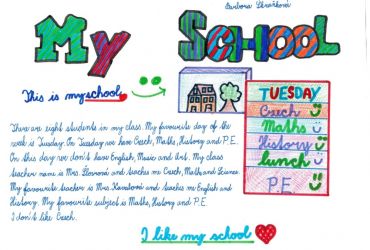 Barbora
My School
This is my school
TUESDAY
Czech
Maths
History
lunch
P.E.
There are eight students in my class. My favourite day of the
week is Tuesday. On Tuesday we have Czech, Maths, History and P.E.
On this day we don't have English, Music and Art. My class
teacher name is Mrs. and teaches me Czech, Maths and Science.
My favourite teacher is Mrs. and teaches me English and
History. My favourite subject is Maths, History and P.E.
I don't like Czech.
I like my school